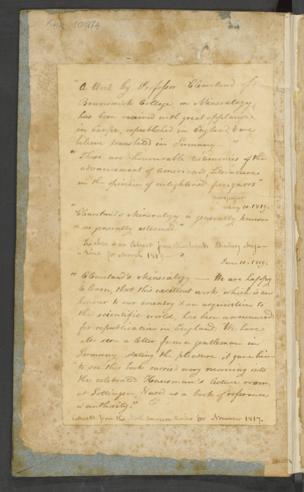 "A Work by Professor Cleaveland of
Brunswick College on Mineralogy,
has been received with great applause
in Europe, republished in England, & we
believe translated in Germany.
"These are honourable testimonies of the
advancement of American Literature
in the opinion of enlightened foreigners"
1819.
"Cleaveland's Mineralogy is generally known
& as generally esteemed"
Extract from
for 1819.
June 10. 1819.
"Cleaveland's Mineralogy — We are happy
to learn, that this excellent work, which is an
honour to our country & an acquisition to
the scientific world, has been announced
for republication in England. We have
also seen a letter from a gentleman in
Germany stating the pleasure it gave him
to see this book carried every morning into
the celebrated Hausman's lecture room
at Gottingen, & used as a book of reference
& authority."
Extract from the for November 1817.